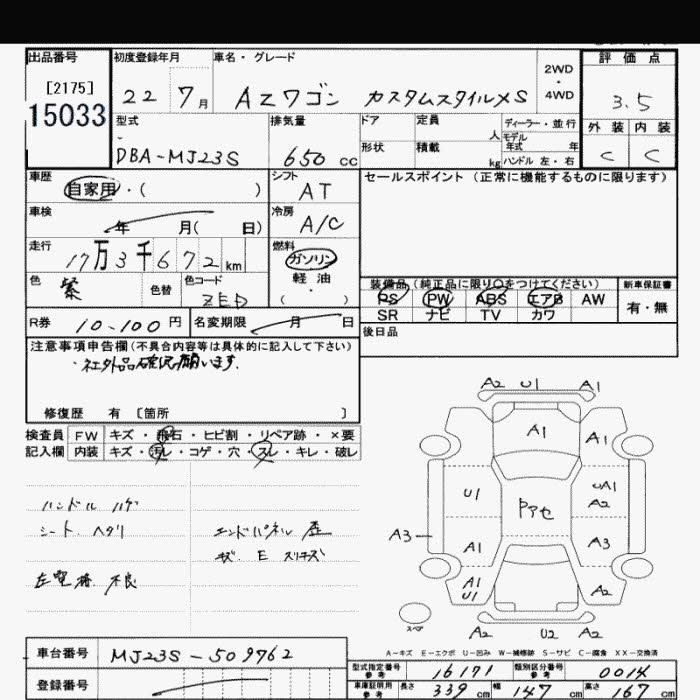 出品番号 初度登録年月 車名・グレード 2WD・4WD 評価点
[2175]
15033 22 7月 AZワゴン カスタムスタイルXS 3.5
型式 排気量 ドア 定員 人 ディーラー・並行 外装 内装
DBA-MJ23S 650cc 形状 積載 kg モデル年式 年 ハンドル 左・右 C C
車歴 自家用・( ) シフト AT セールスポイント(正常に機能するものに限ります)
車検 年 月( 日) 冷房 A/C
走行 17万3千672km 燃料 ガソリン
軽油・( )
色 紫 色替 色コード ZED
装備品(純正品に限り○をつけてください) 新車保証書
PS PW ABS エアB AW 有・無
SR ナビ TV カワ
R券 10-100円 名変期限 月 日 後日品
注意事項申告欄(不具合内容等は具体的に記入して下さい)
・社外品確認願います。
修復歴 有 〔箇所 〕
検査員 FW キズ・飛石・ヒビ割・リペア跡・×要
記入欄 内装 キズ・汚レ・コゲ・穴・スレ・キレ・破レ
ハンドル ハゲ
シート ヘタリ エンドパネル 歪
キズ E スリキズ
左電格 不良
A2 U1 A1
A1 A1
U1 Pアセ UA1
A2
A3 A1 A3
A1
U1 A2
スペア A2 U2 A2
A-キズ E-エクボ U-凹み W-補修跡 S-サビ C-腐食 XX-交換済
車台番号 MJ23S-509762
登録番号
型式指定番号 参考 16171 類別区分番号 参考 0014
車庫証明用 参考 長さ 339cm 幅 147cm 高さ 167cm